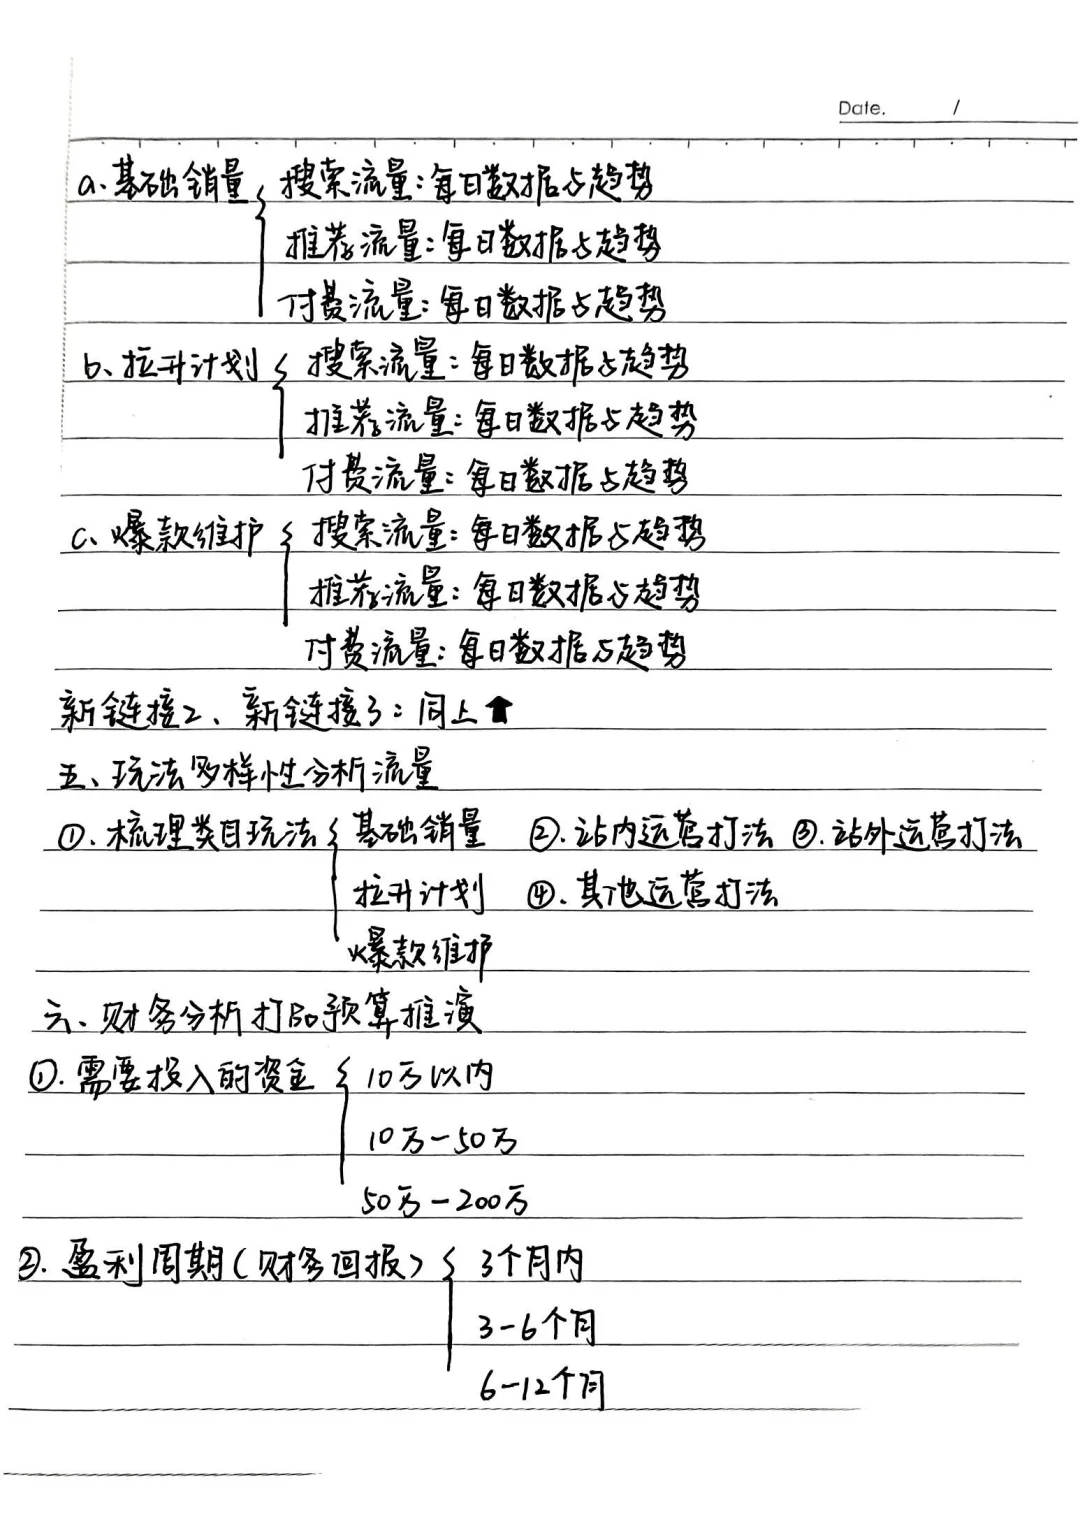 Date. /
a、基础销量 搜索流量：每日数据与趋势
推荐流量：每日数据与趋势
付费流量：每日数据与趋势
b、拉升计划 搜索流量：每日数据与趋势
推荐流量：每日数据与趋势
付费流量：每日数据与趋势
c、爆款维护 搜索流量：每日数据与趋势
推荐流量：每日数据与趋势
付费流量：每日数据与趋势
新链接2、新链接3：同上⬆
五、玩法多样性分析流量
①.梳理类目玩法 基础销量 ②.站内运营打法 ③.站外运营打法
拉升计划 ④.其他运营打法
爆款维护
六、财务分析打品预算推演
①.需要投入的资金 10万以内
10万-50万
50万-200万
②.盈利周期(财务回报) 3个月内
3-6个月
6-12个月